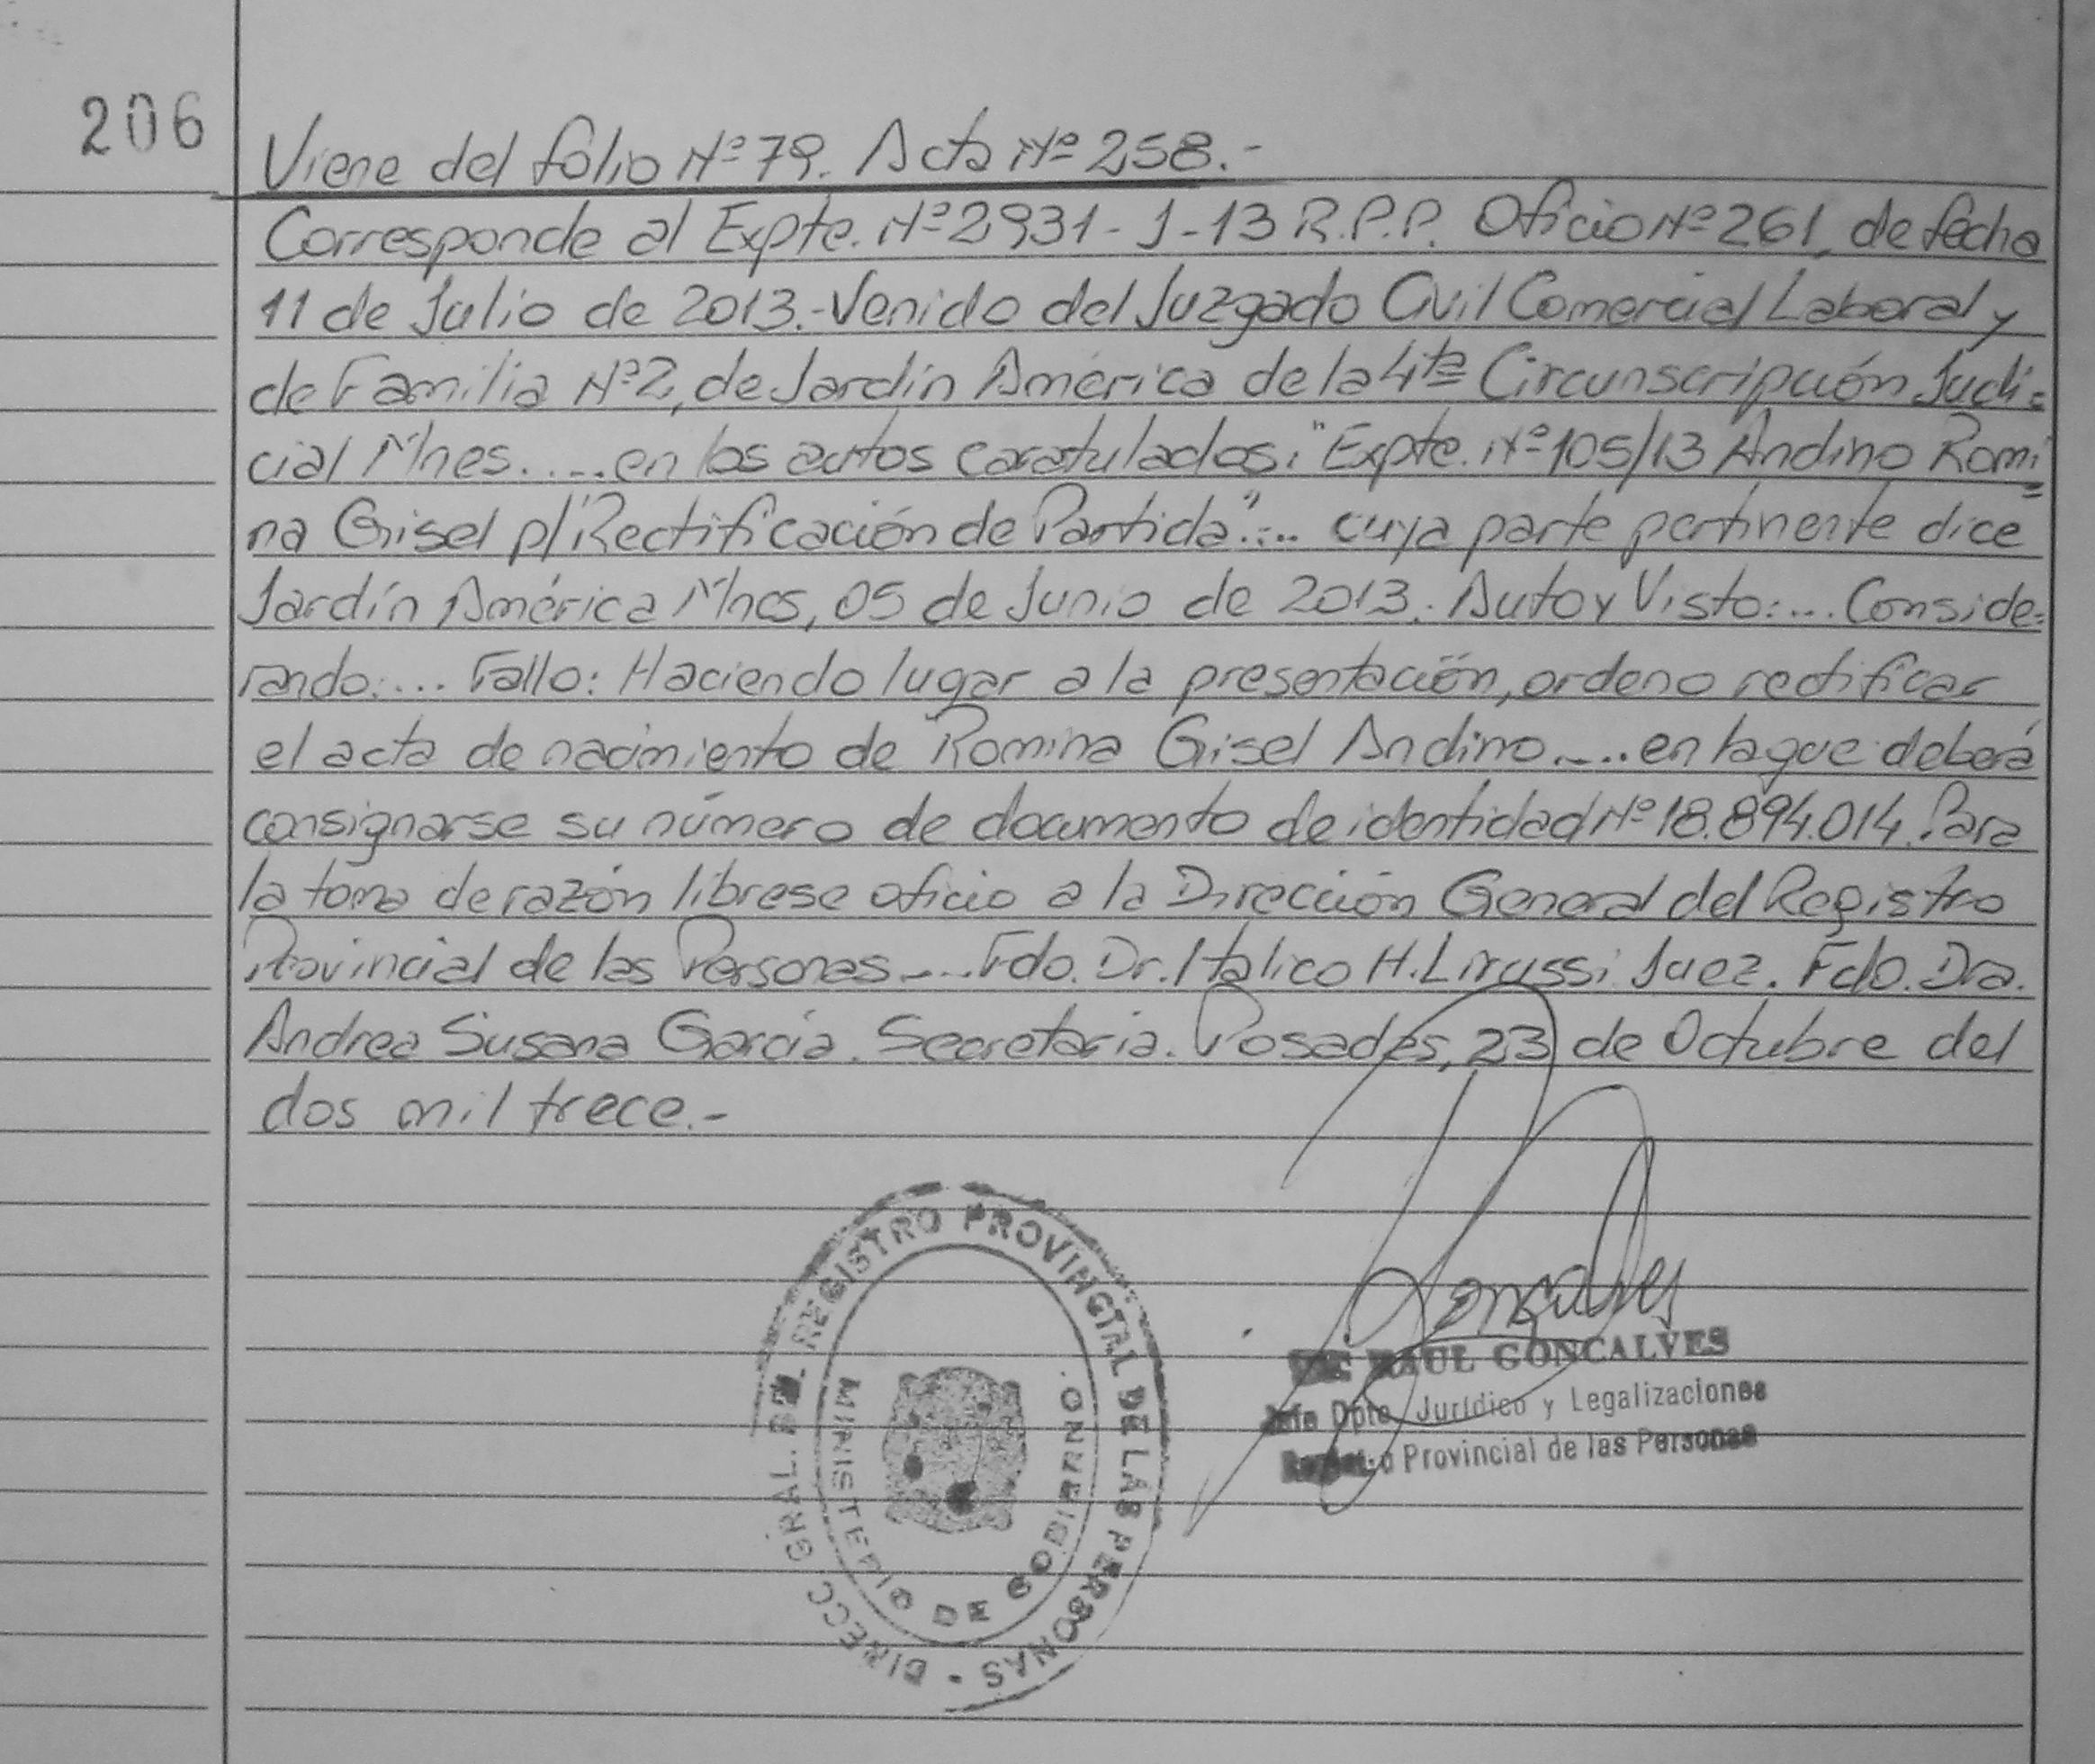 206
Viene del folio Nº 79. Acta Nº 258.-
Corresponde al Expte. Nº 2931-J-13 R.P.P. Oficio Nº 261, de fecha
11 de Julio de 2013.- Venido del Juzgado Civil Comercial Laboral y
de Familia Nº 2, de Jardín América de la 4ta Circunscripción Judi=
cial Mnes.....en los autos caratulados: "Expte. Nº 105/13 Andino Romi=
na Gisel p/Rectificación de Partida".... cuya parte pertinente dice
Jardín América Mnes, 05 de Junio de 2013. Auto y Visto:... Conside=
rando:... Fallo: Haciendo lugar a la presentación, ordeno rectificar
el acta de nacimiento de Romina Gisel Andino.....en la que deberá
consignarse su número de documento de identidad Nº 18.894.014. Para
la toma de razón líbrese oficio a la Dirección General del Registro
Provincial de las Personas.....Fdo. Dr. Italico H. Lirussi Juez. Fdo. Dra.
Andrea Susana García. Secretaria. Posadas, 23 de Octubre del
dos mil trece.-
DIRECC. GRAL. DEL REGISTRO PROVINCIAL DE LAS PERSONAS -
MINISTERIO DE GOBIERNO.
Gonçalves
RAUL GONCALVES
Jefe Dpto. Jurídico y Legalizaciones
Registro Provincial de las Personas